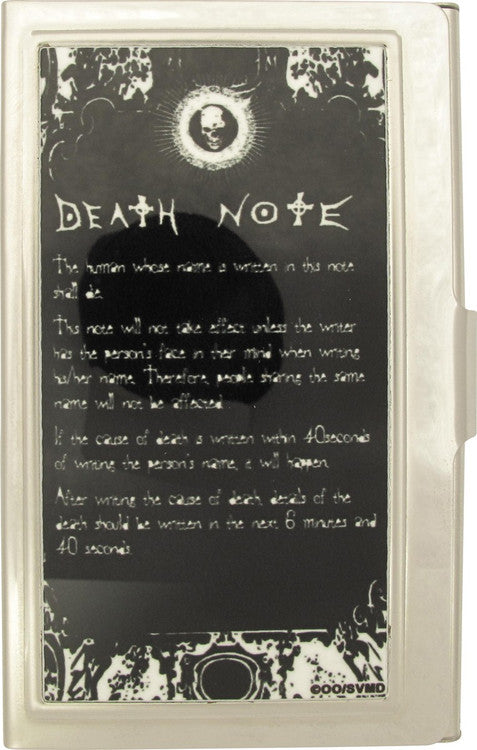 DEATH NOTE
The human whose name is written in this note
shall die.
This note will not take effect unless the writer
has the person's face in ther mind when writing
his/her name. Therefore, people sharing the same
name will not be affected.
If the cause of death is written within 40seconds
of writing the person's name, it will happen.
After writing the cause of death, details of the
death should be written in the next 6 minutes and
40 seconds.
©OO/SVMD